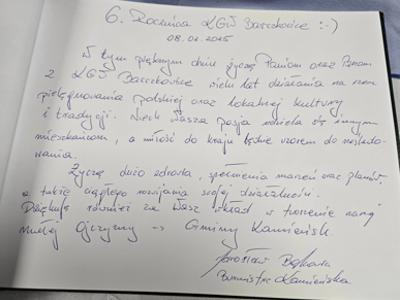 6. Rocznica KGW Barczkowice :-)
08.02.2025
W tym pięknym dniu życzę Paniom oraz Panom
z KGW Barczkowice wielu lat działania na rzecz
pielęgnowania polskiej oraz lokalnej kultury
i tradycji. Niech Wasza pasja udziela się innym
mieszkańcom, a miłość do kraju będzie wzorem do naślado-
wania.
Życzę dużo zdrowia, spełnienia marzeń oraz planów,
a także ciągłego rozwijania swojej działalności.
Dziękuję również za Wasz wkład w tworzenie naszej
małej Ojczyzny -> Gminy Kamieńsk.
Jarosław
Burmistrz Kamieńska